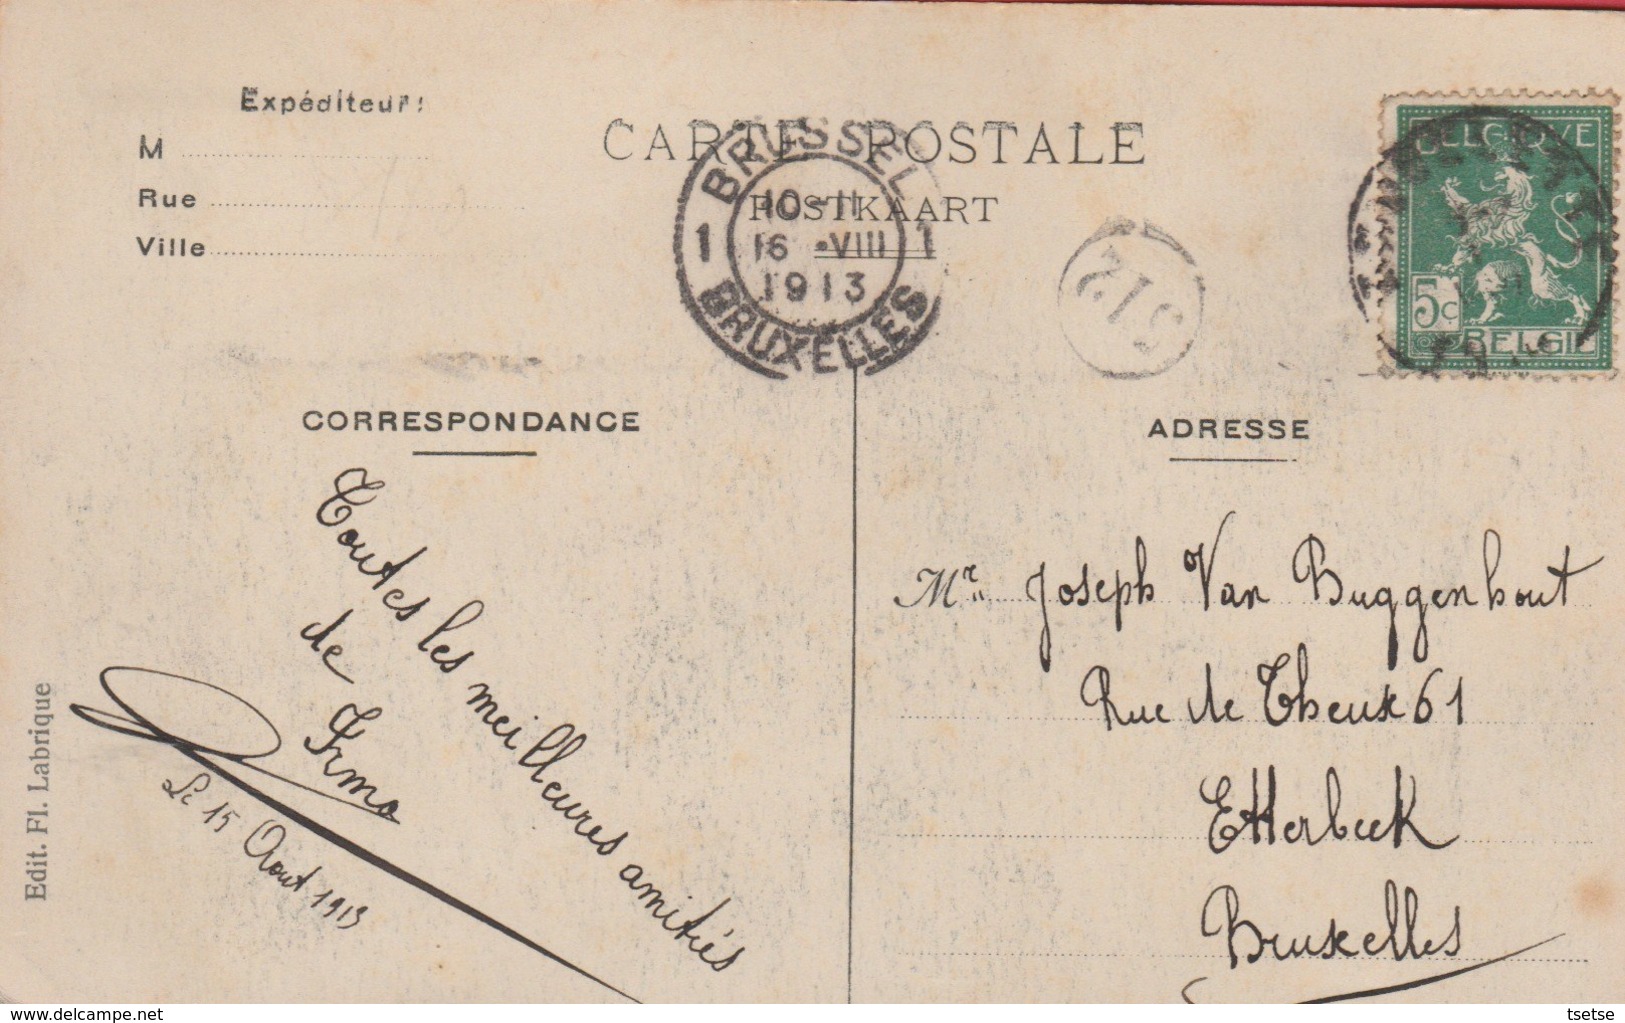 Expéditeur:
M
Rue
Ville
CARTE POSTALE
POSTKAART
BRUSSEL
10-11
1 16 •VIII 1
1913
BRUXELLES
512
BELGIQUE
5c
BELGIE
CORRESPONDANCE
ADRESSE
Toutes les meilleures amitiés
de
Irma
Le 15 Aout 1913
Mr. Joseph Van Buggenhout
Rue de Theux 61
Etterbeek
Bruxelles
Edit. Fl. Labrique
www.delcampe.net
tsetse